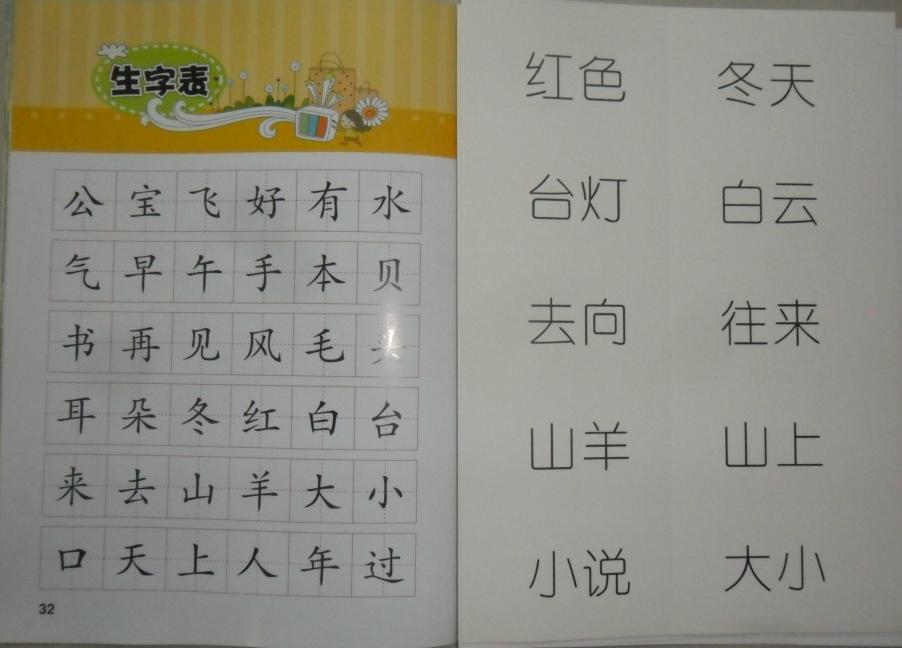 生字表
公宝飞好有水
气早午手本贝
书再见风毛头
耳朵冬红白台
来去山羊大小
口天上人年过
32
红色 冬天
台灯 白云
去向 往来
山羊 山上
小说 大小